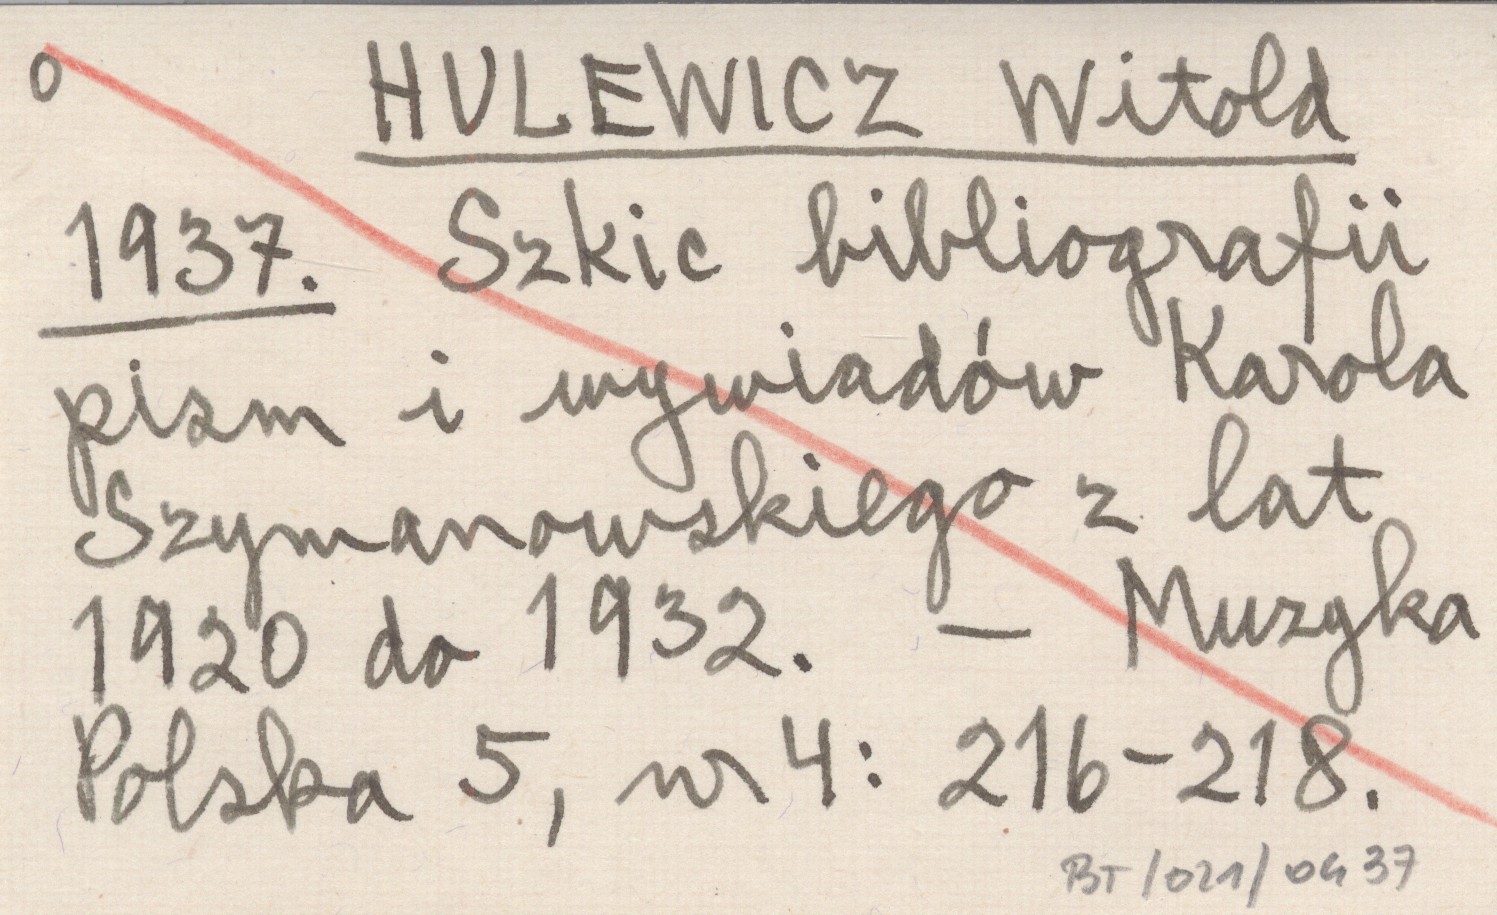 0 HULEWICZ Witold
1937. Szkic bibliografii
pism i wywiadów Karola
Szymanowskiego z lat
1920 do 1932. — Muzyka
Polska 5, nr 4: 216-218.
BT/021/0437